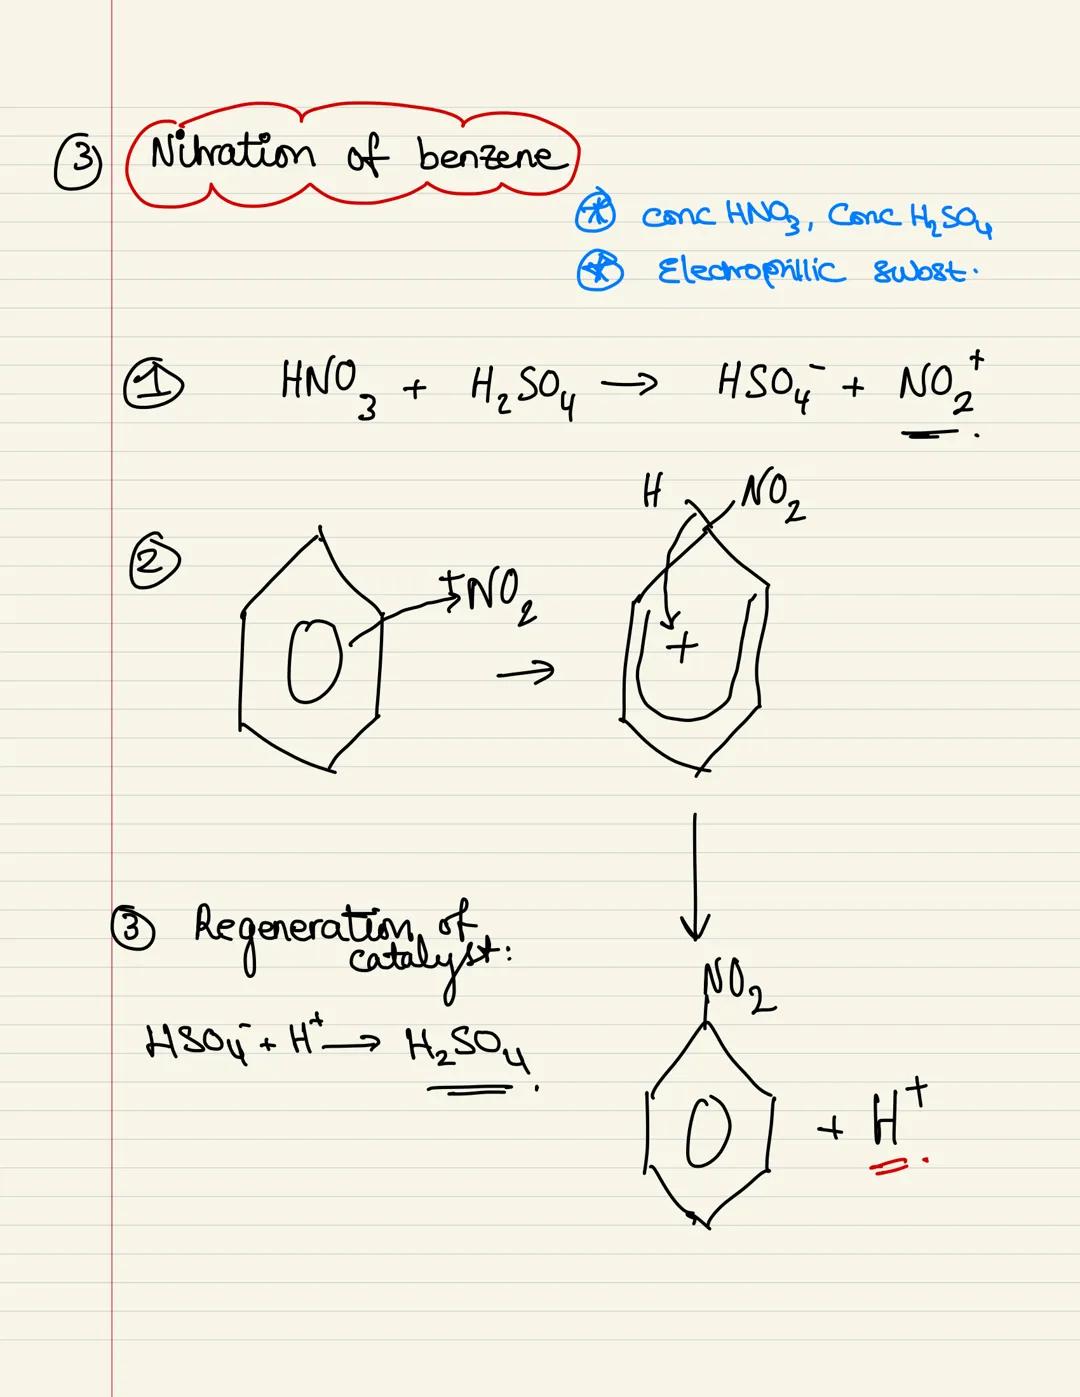 ③ Nitration of benzene
⊛ conc HNO₃, Conc H₂SO₄
⊛ Electrophillic subst.
① HNO₃ + H₂SO₄ → HSO₄⁻ + NO₂⁺
H NO₂
② ⁺NO₂ →
+
③ Regeneration of
catalyst:
NO₂
HSO₄⁻ + H⁺ → H₂SO₄.
+ H⁺.